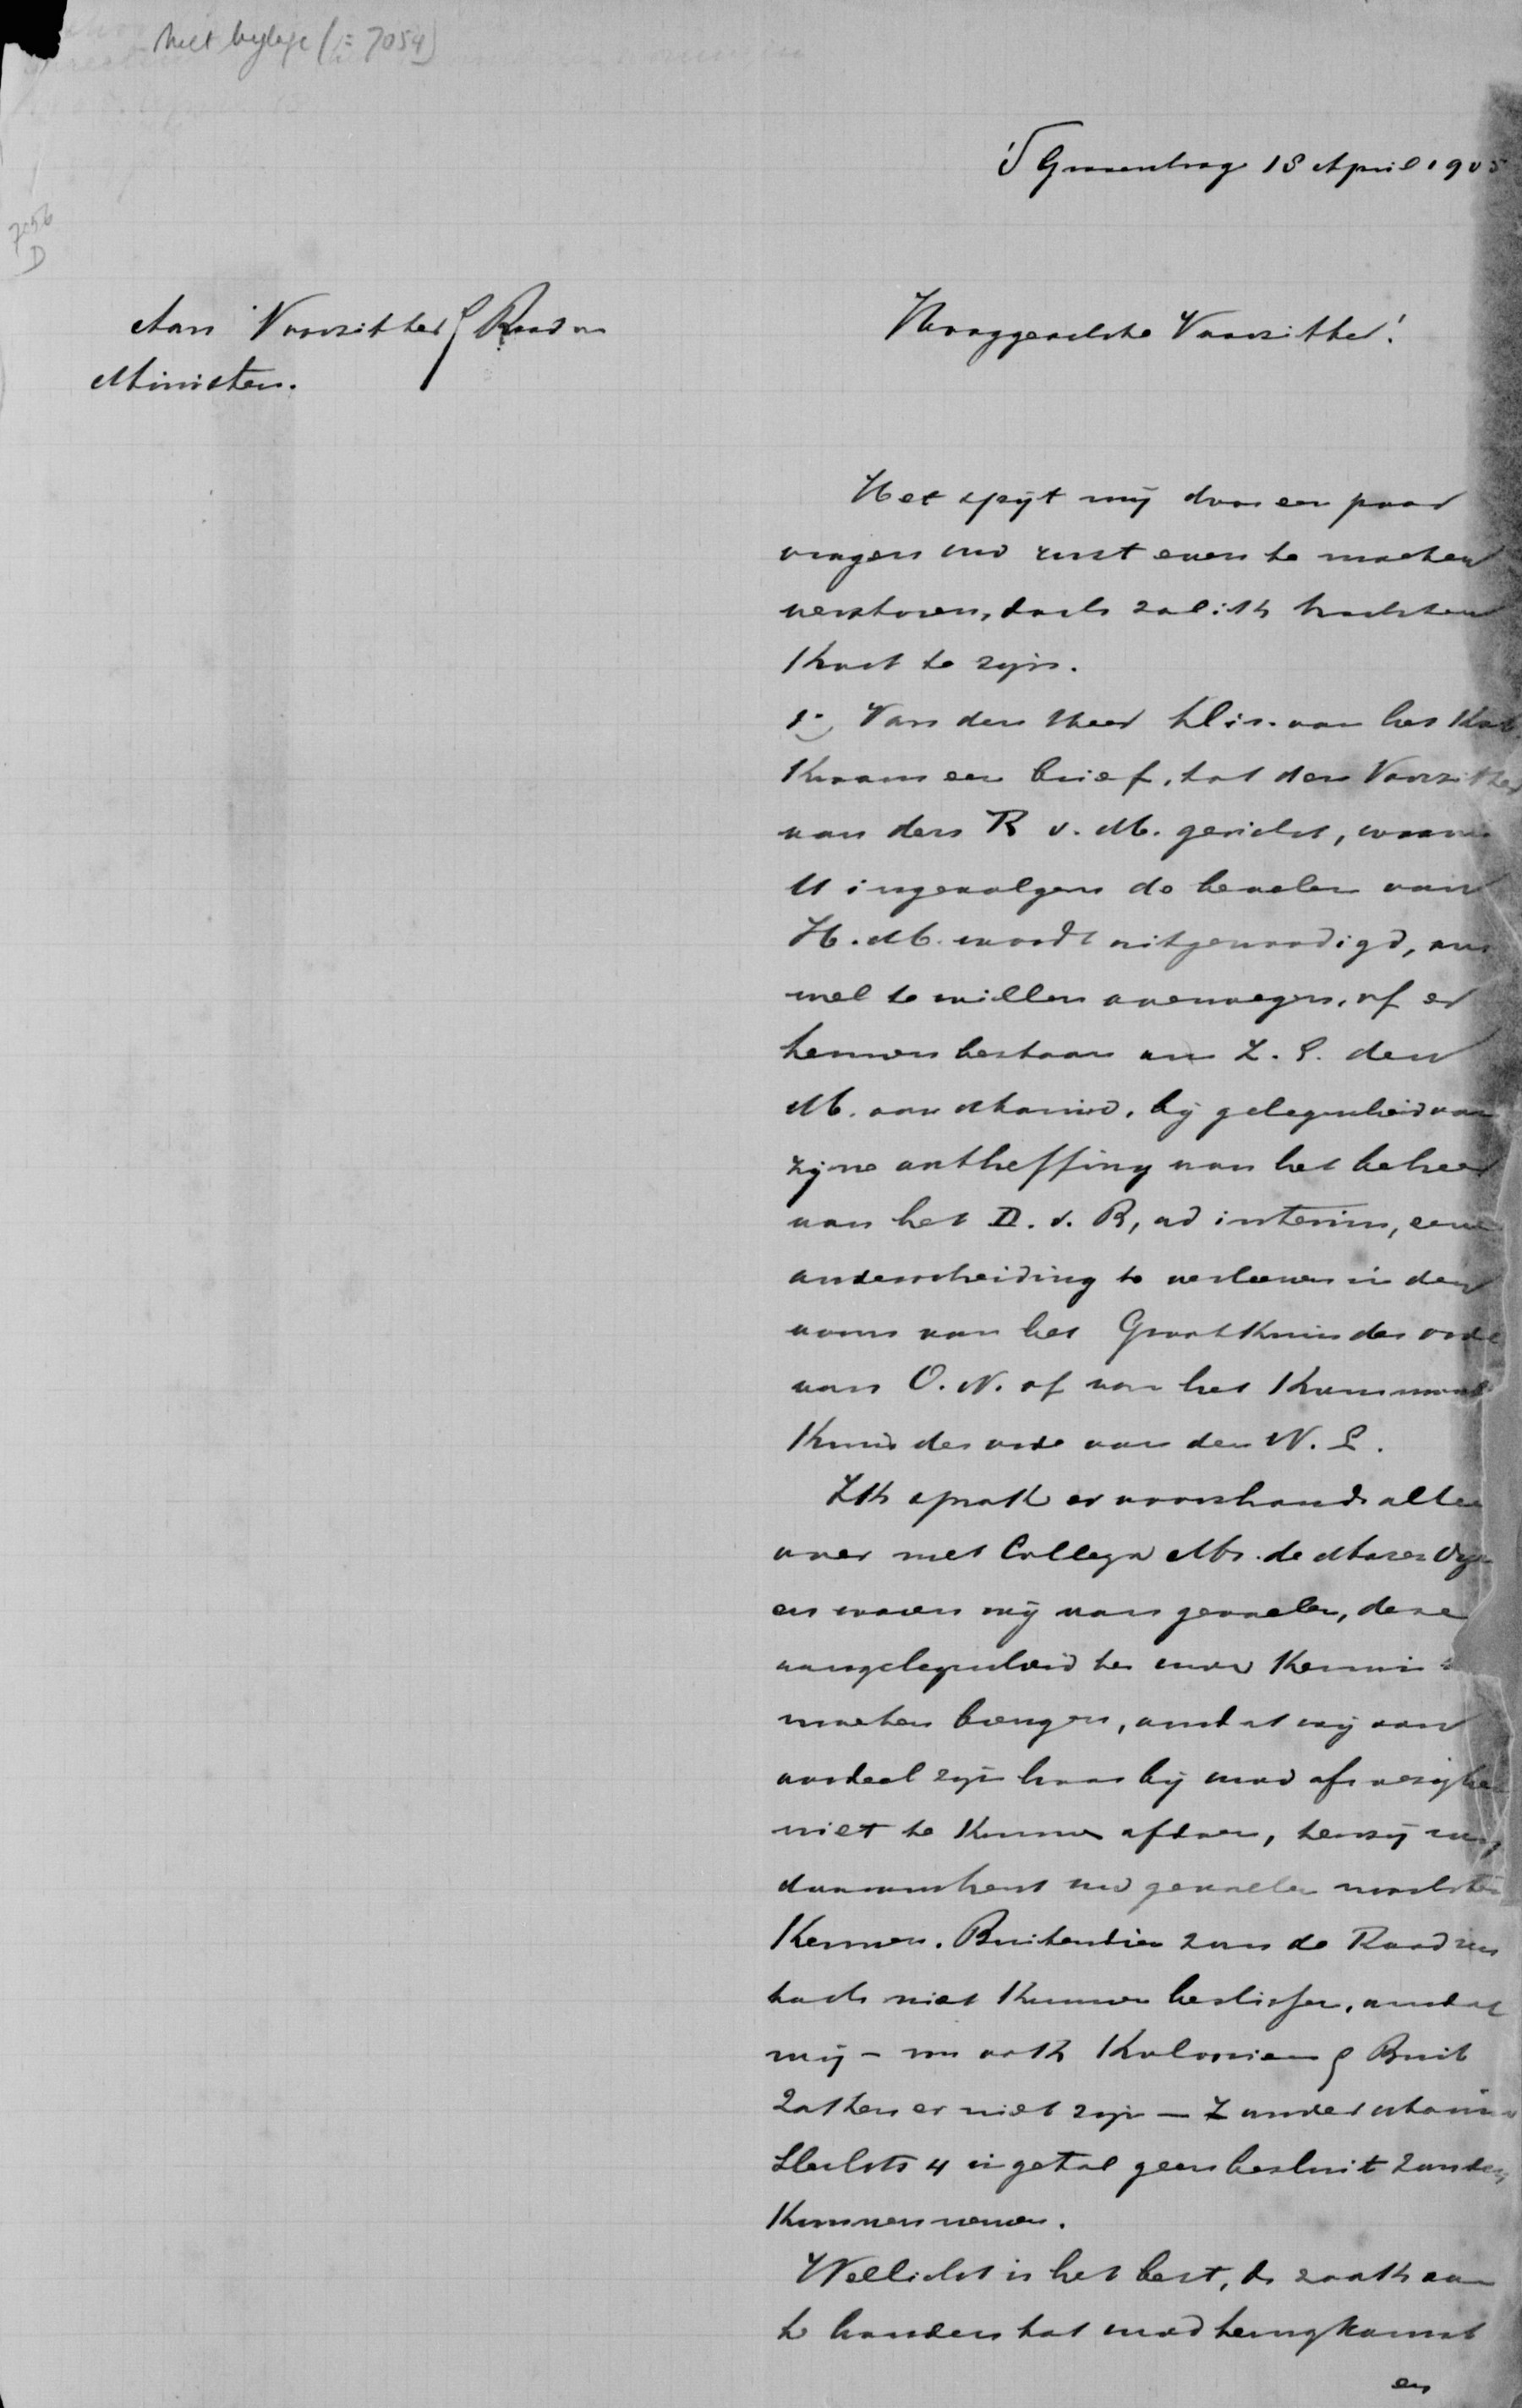 Met bijlage (= 7054)
'S Gravenhage 18 April 1905
7056
D
Aan Voorzitter Raad van
Ministers.
Hooggeachte Voorzitter!
Het spijt mij door een paar
vragen uw rust even te moeten
verstoren, doch zal ik trachten
kort te zijn.
1o. Van den Heer Dir. van het Kab.
kwam een brief, tot den Voorzitter
van den R v. M. gericht, waarin
U ingevolgen de bevelen van
H. M. wordt uitgenoodigd, om
wel te willen overwegen, of er
termen bestaan om Z. E. den
M. van Marine, bij gelegenheid van
zijne ontheffing van het beheer
van het D. v. B, ad interim, eene
onderscheiding te verleenen in den
vorm van het Grootkruis der orde
van O. N. of van het Kommand
kruis der orde van den N. L.
Ik sprak er voorshands alleen
over met Collega Mr. de Marez Oyens
en waren wij van gevoelen, deze
aangelegenheid ter uwer kennis te
moeten brengen, omdat wij van
oordeel zijn haar bij uwe afwezigheid
niet te kunnen afdoen, tenzij wij
daaromtrent uw gevoelen mochten
kennen. Buitendien zou de Raad
toch niet kunnen beslissen, omdat
wij – nu ook Kolonien & Buit
Zaken er niet zijn – zonder Marine
slechts 4 in getal geen besluit zouden
kunnen nemen.
Wellicht is het best, de zaak aan
te houden tot uwe terugkomst
en